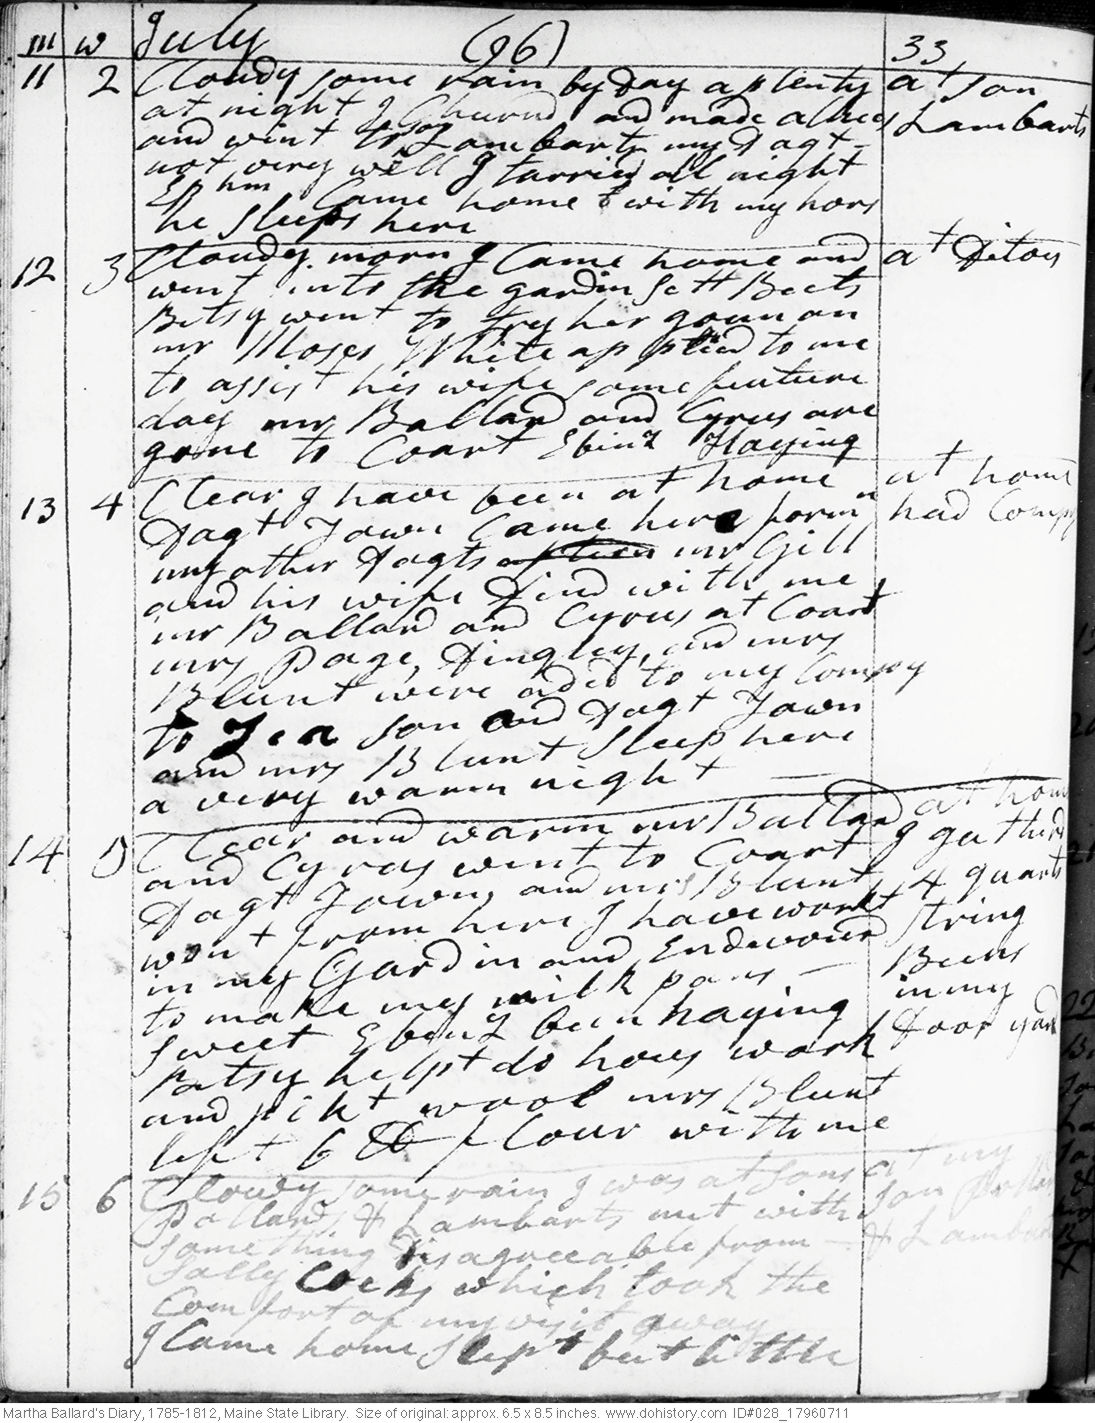 m w July (96) 33
11 2 Cloudy some rain by Day a plenty at Son
at night I Churnd and made a Chees Lambarts
and went to Son Lambarts my Dagt
not very well I tarried all night
Ephm Came home with my hors
he sleeps here
12 3 Cloudy morn I Came home and at Ditoes
went into the gardin sett Beets
Betsy went to try her goun on
mr Moses White applied to me
to assist his wife some feuture
day mr Ballard and Cyrus are
gone to Coart Ebinz Haying
13 4 Clear I have been at home at home
Dagt Town Came here form had Compy
my other Dagts mr Gill
and his wife Dind with me
mr Ballard and Cyrus at Coart
mrs Page, Dingley, and mrs
Blunt were aded to my Compy
to Tea son and Dagt Town
and mrs Blunt sleep here
a very warm night
14 5 Clear and warm mr Ballard at home
and Cyras went to Coart I gatherd
Dagt Town, and mrs Blunt 4 quarts
went from here I have workt string
in my Gardin and Endevourd Beens
to make my milk pans in my
sweet Ebinz been haying Door yard
Betsy helpt do hous work
and pikt wool mrs Blunt
left 6 lb flour with me
15 6 Clowdy some rain I was at sons at my
Pollards & Lambarts met with son Pollards
something disagreeable from & Lambarts
Sally Cocks which took the
Comfort of my visit away
I Came home slept but little
Martha Ballard's Diary, 1785-1812, Maine State Library. Size of original: approx. 6.5 x 8.5 inches. www.dohistory.com ID#028_17960711